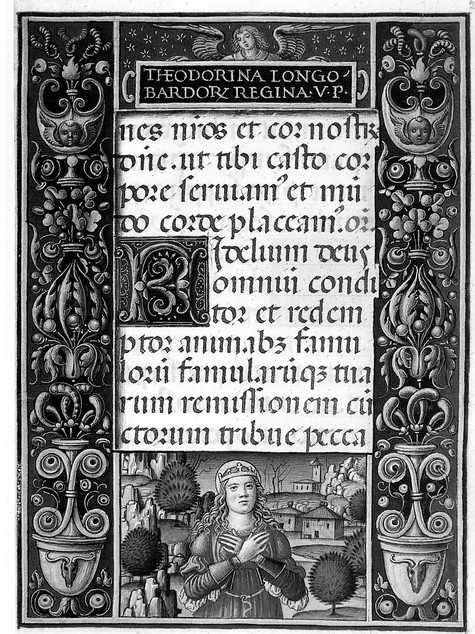 THEODORINA LONGO
BARDORꝜ REGINA·V·P·
nes nr̄os et cor nostrū
dn̄e. ut tibi casto cor
pore seruiam⁹ et mū
do corde placeam⁹. or.
Fidelium deus
omnium condi
tor et redem
ptor animabꝫ famu
lorū famularūqꝫ tua
rum remissionem cū
ctorum tribue pecca